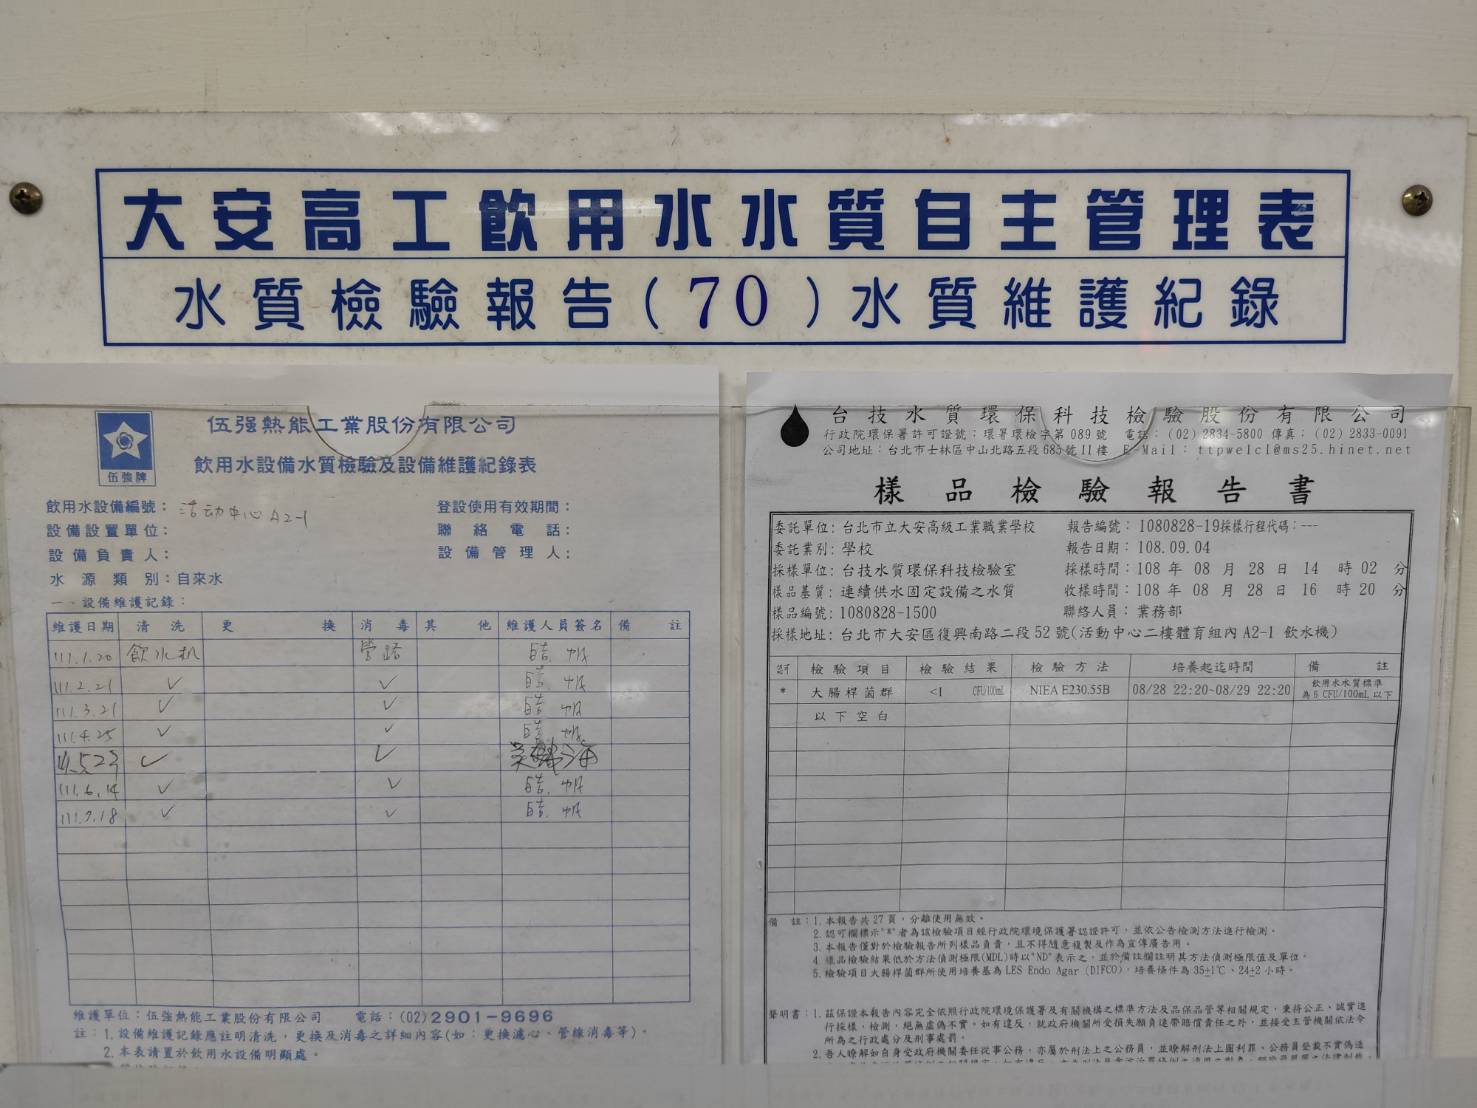 大安高工飲用水水質自主管理表
水質檢驗報告(70)水質維護紀錄
伍強牌
伍强熱能工業股份有限公司
飲用水設備水質檢驗及設備維護紀錄表
飲用水設備編號：活动中心A2-1 登設使用有效期間：
設備設置單位： 聯絡電話：
設備負責人： 設備管理人：
水源類別：自來水
一、設備維護記錄：
維護日期 清洗 更換 消毒 其他 維護人員簽名 備註
111.1.20 飲水机 管路
111.2.21 ✓ ✓
111.3.21 ✓ ✓
111.4.25 ✓ ✓
111.5.23 ✓ ✓
111.6.14 ✓ ✓
111.7.18 ✓ ✓
維護單位：伍強熱能工業股份有限公司 電話：(02)2901-9696
註：1.設備維護記錄應註明清洗，更换及消毒之詳細內容(如：更換濾心、管線消毒等)。
2.本表請置於飲用水設備明顯處。
台技水質環保科技檢驗股份有限公司
行政院環保署許可證號：環署環檢字第089號 電話：(02)2834-5800 傳真：(02)2833-0091
公司地址：台北市士林區中山北路五段685號11樓 E-Mail：ttpwelcl@ms25.hinet.net
樣品檢驗報告書
委託單位：台北市立大安高級工業職業學校 報告編號：1080828-19採樣行程代碼：---
委託業別：學校 報告日期：108.09.04
採樣單位：台技水質環保科技檢驗室 採樣時間：108年08月28日14時02分
樣品基質：連續供水固定設備之水質 收樣時間：108年08月28日16時20分
樣品編號：1080828-1500 聯絡人員：業務部
採樣地址：台北市大安區復興南路二段52號(活動中心二樓體育組內A2-1飲水機)
認可 檢驗項目 檢驗結果 檢驗方法 培養起迄時間 備註
* 大腸桿菌群 <1 CFU/100mL NIEA E230.55B 08/28 22:20~08/29 22:20 飲用水水質標準為6 CFU/100mL以下
以下空白
備註：1.本報告共27頁，分離使用無效。
2.認可欄標示"*"者為該檢驗項目經行政院環境保護署認證許可，並依公告檢測方法進行檢測。
3.本報告僅對於檢驗報告所列樣品負責，且不得隨意複製及作為宣傳廣告用。
4.樣品檢驗結果低於方法偵測極限(MDL)時以"ND"表示之，並於備註欄註明其方法偵測極限值及單位。
5.檢驗項目大腸桿菌群所使用培養基為LES Endo Agar (DIFCO)，培養條件為35±1℃、24±2小時。
聲明書：1.茲保證本報告內容完全依照行政院環境保護署及有關機構之標準方法及品保品管等相關規定，秉持公正、誠實進
行採樣、檢測，絕無虛偽不實，如有違反，就政府機關所受損失願負連帶賠償責任之外，並接受主管機關依法令
所為之行政處分及刑事處罰。
2.吾人瞭解如自身受政府機關委任從事公務，亦屬於刑法上之公務員，並瞭解刑法上圖利罪、公務員登載不實偽造